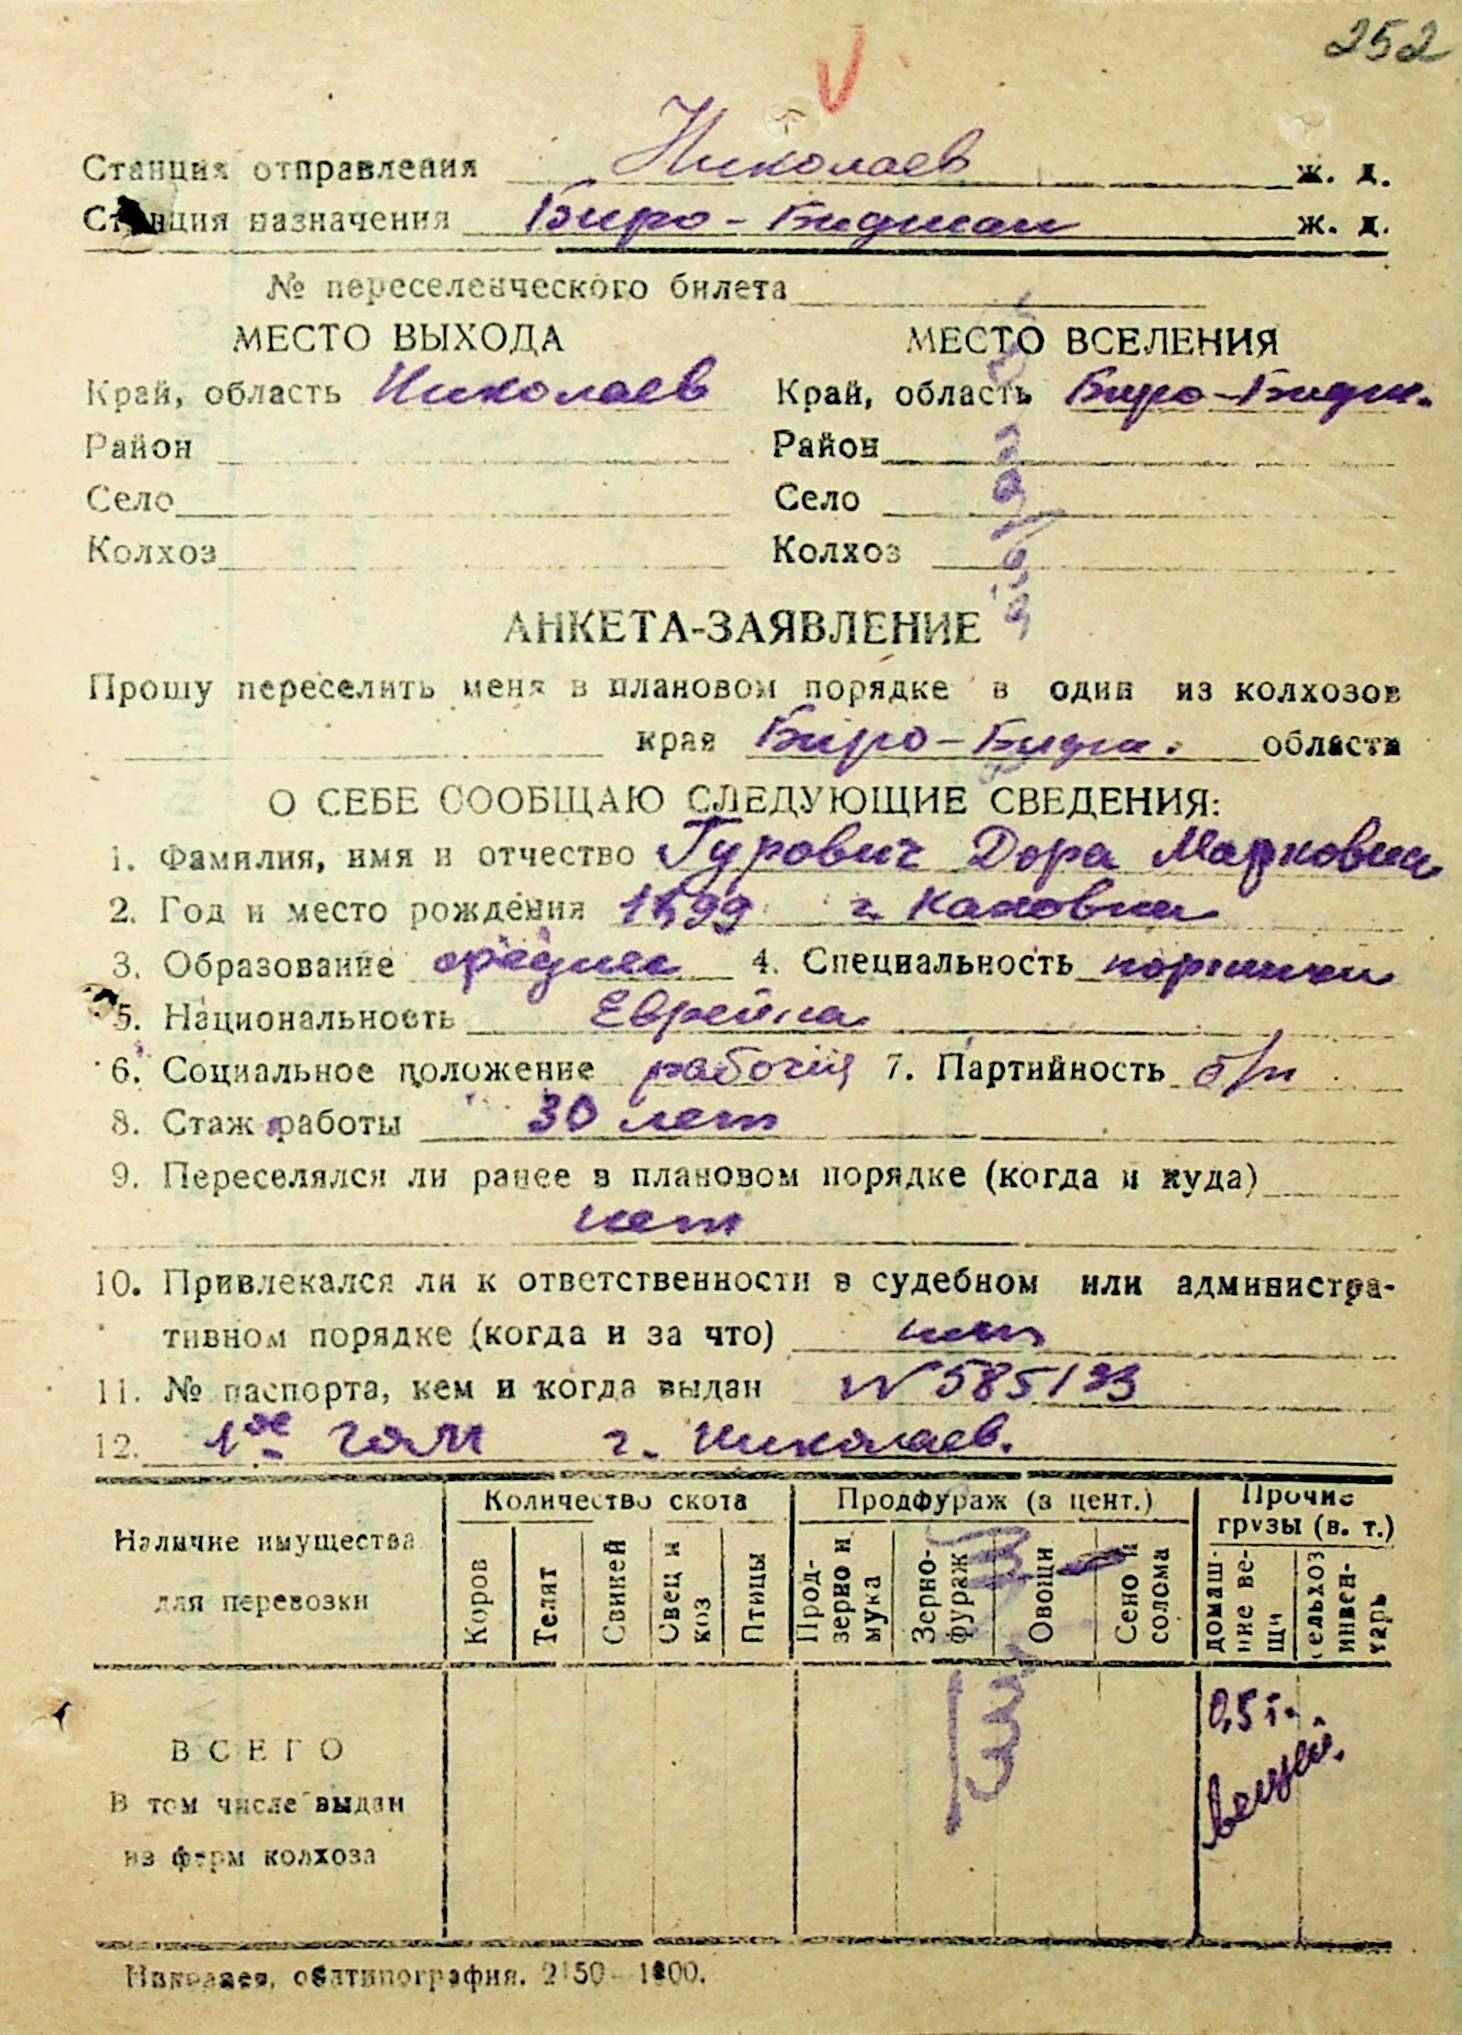 252
Станция отправления Николаев ж. д.
Станция назначения Биро-Биджан ж. д.
№ переселенческого билета
МЕСТО ВЫХОДА
МЕСТО ВСЕЛЕНИЯ
Край, область Николаев
Край, область Биро-Бидж.
Район
Район
Село
Село
Колхоз
Колхоз
АНКЕТА-ЗАЯВЛЕНИЕ
Прошу переселить меня в плановом порядке в один из колхозов
края Биро-Бидж. области
О СЕБЕ СООБЩАЮ СЛЕДУЮЩИЕ СВЕДЕНИЯ:
1. Фамилия, имя и отчество Гурович Дора Марковна
2. Год и место рождения 1899 г. Каховка
3. Образование среднее 4. Специальность портниха
5. Национальность Еврейка
6. Социальное положение рабочий 7. Партийность б/п
8. Стаж работы 30 лет
9. Переселялся ли ранее в плановом порядке (когда и куда)
нет
10. Привлекался ли к ответственности в судебном или административном порядке (когда и за что) нет
11. № паспорта, кем и когда выдан № 585133
12. 1ое ГОМ г. Николаев.
Наличие имущества для перевозки
Количество скота
Продфураж (в цент.)
Прочие грузы (в. т.)
Коров
Телят
Свиней
Овец и коз
Птицы
Прод-зерно и мука
Зерно-фураж
Овощи
Сено и солома
домаш-ние ве-щи
сельхоз инвен-тарь
ВСЕГО
В том числе выдан
из ферм колхоза
0,5 т.
вещей.
Николаев, облтипография. 2150—1000.